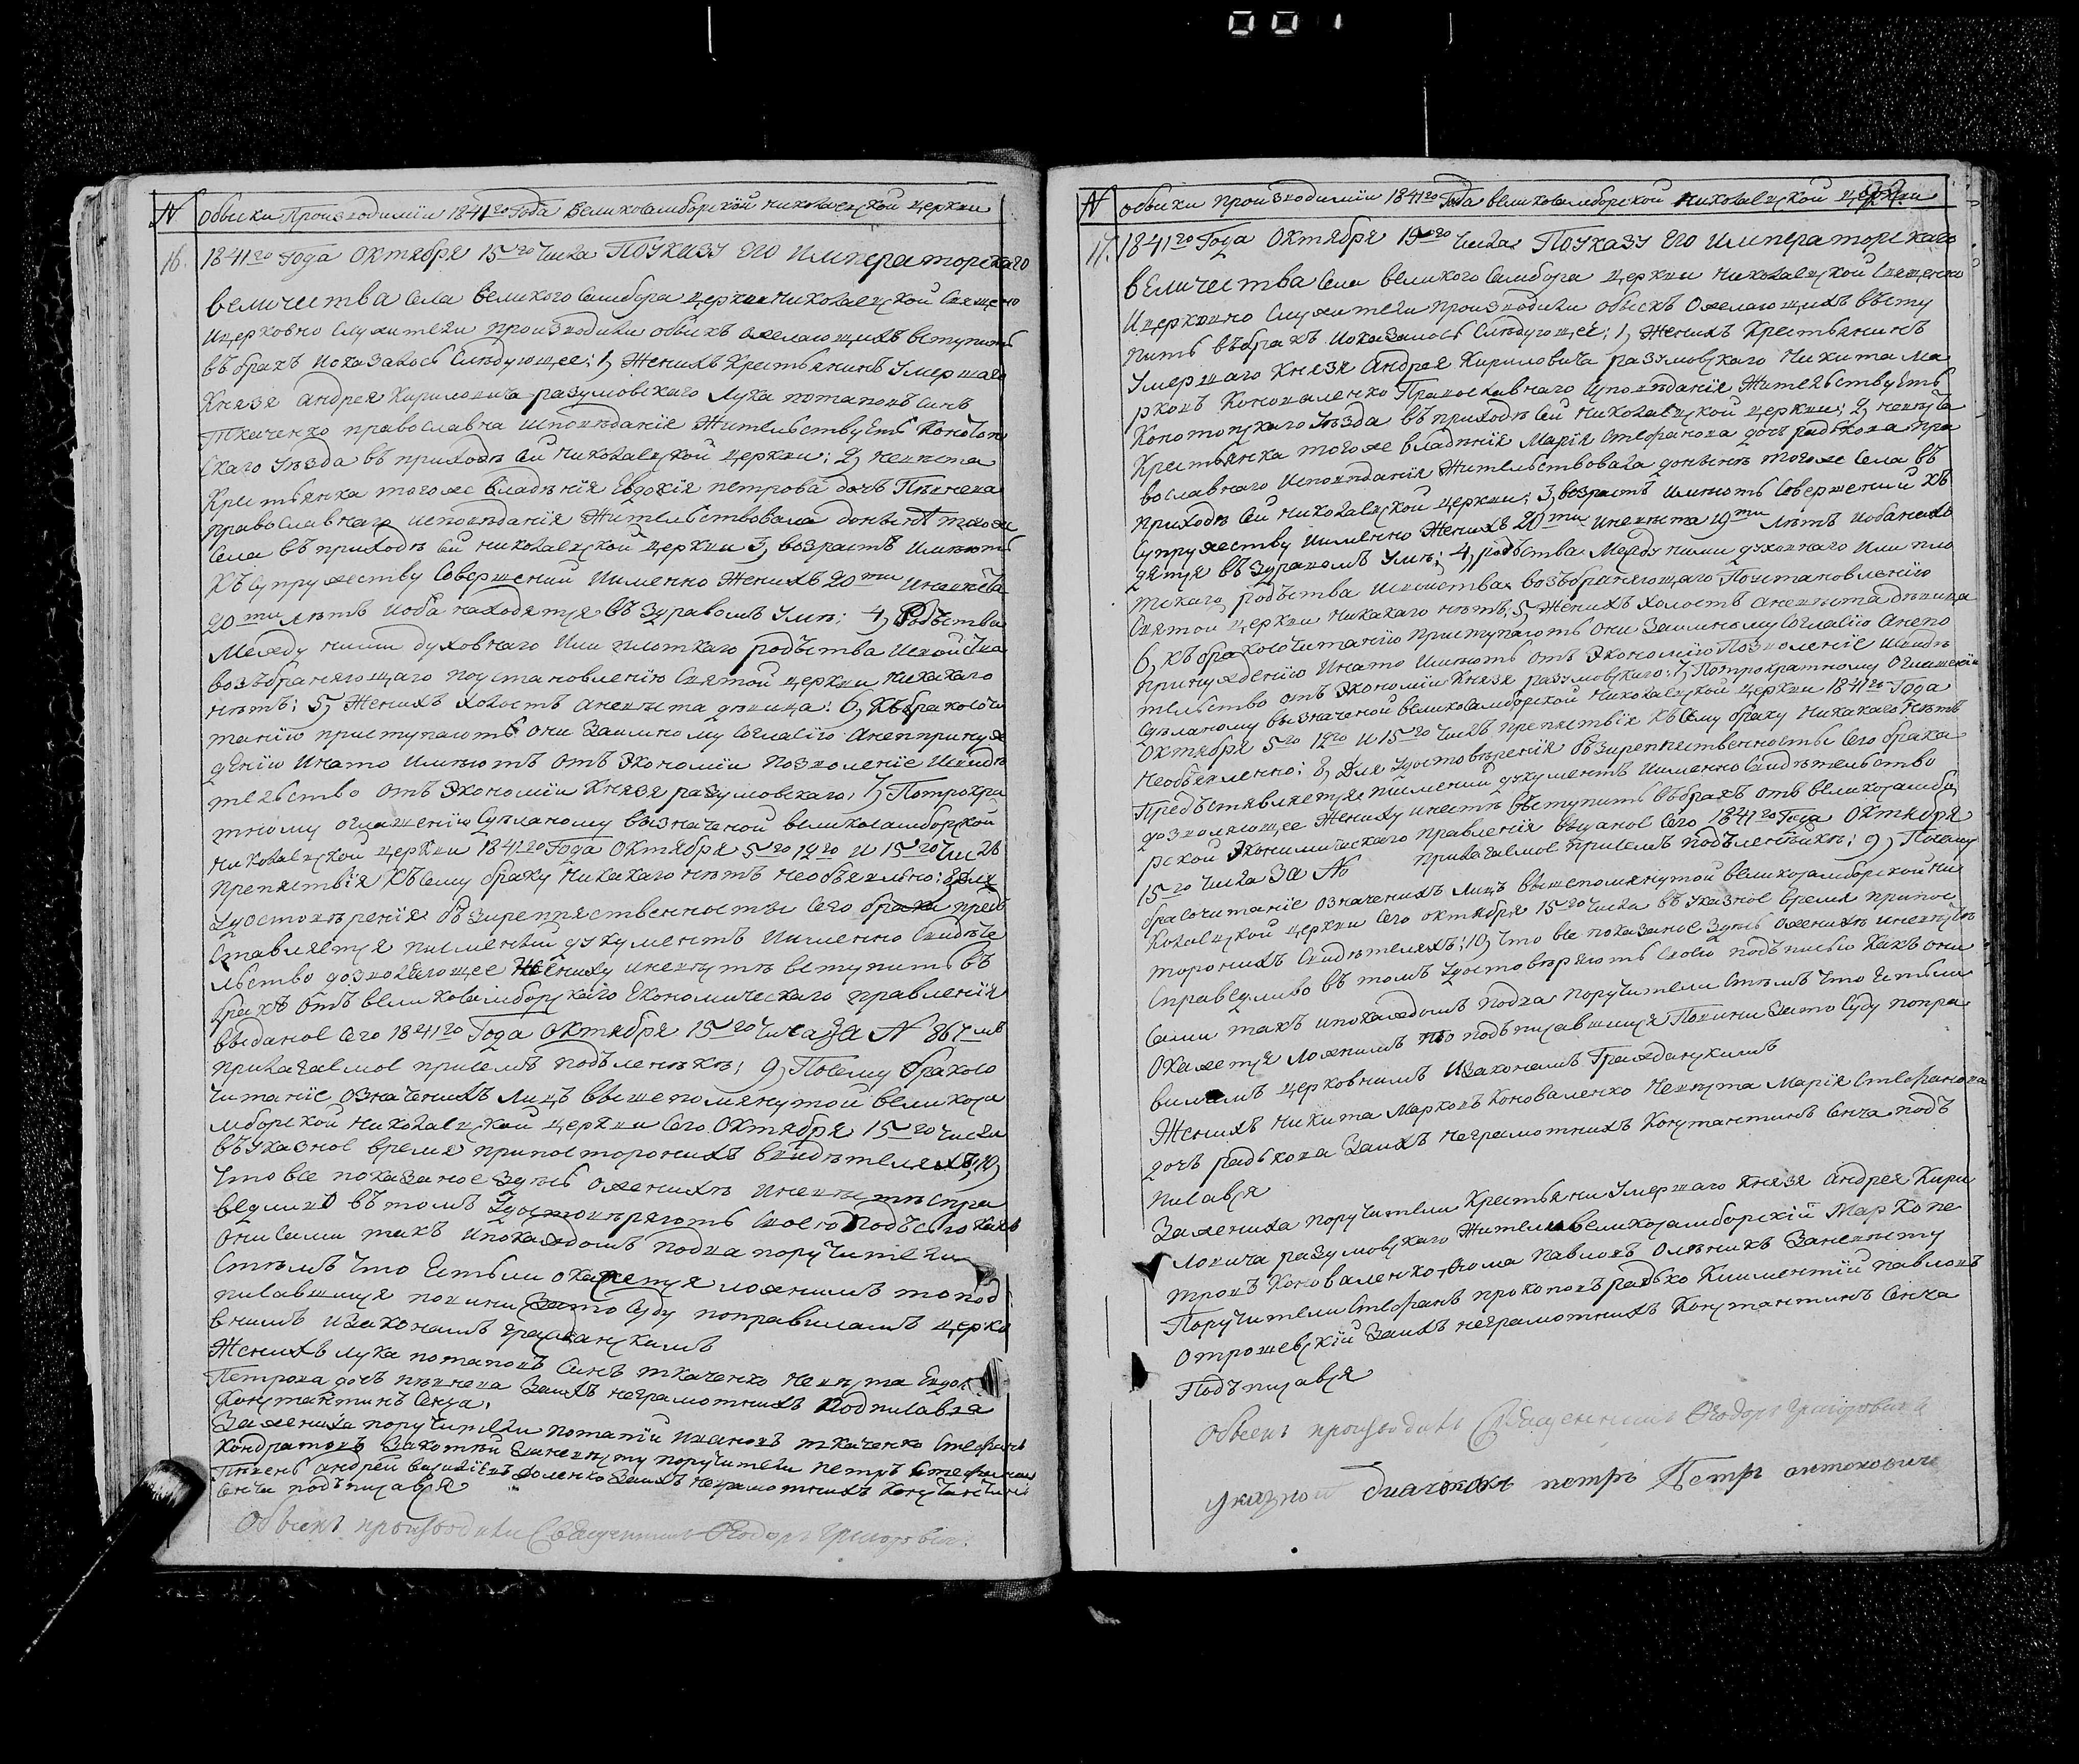 001
N Обыски Произходимїи 1841го Года Великосамборской николаевской церкви
16. 1841го года Октября 15го числа По указу его императорскаго
величества села великого самбура церкви николаевской священо
ицерковно служители произходили обыскъ ожелающихъ вступить
въ бракъ показалось слѣдующее: 1, Женихъ Крестьянинъ умершаго
Князя андрея Кириловича разумовского Лука потаповъ синъ
Ткаченко православна исповѣданїе Жительствуеть Конотопс
скаго уезда въ приходѣ сей николаевской церкви; 2, невѣста
Крестьянка тогоже владѣнїя Евдокїя петрова дочъ Пѣвнева
православнаго исповѣданїя Жительствовала донынѣ тогоже
Села въ приходѣ сей николаевской церкви 3, возрастъ имѣютъ
къ супружеству совершений именно Женихъ 20ти иневѣста
20ти лѣтъ иоба находятся въ здравомъ умѣ; 4, Родъства
Между ними духовнаго или плоткаго родъства исвойства
возъбраняющаго постановленїю святой церкви никакаго
нѣтъ: 5, Женихъ холостъ аневѣста девица: 6, Къ бракосочи
танїю приступаютъ они заимному согласїю анеприну ж
денїю инато имѣютъ отъ Экономїи позволенїе исвидѣ
тельство отъ Экономїи Князя разумовскаго; 7, Потрократ
тному оглашенїю сдѣланому вызначеной великосамборской
николаевской церкви 1841го Года Октября 5го 12го и 15го числъ
препятствїя къ сему браку никакаго нѣтъ необъявлено: 8 Для
удостовѣренїя безпрепятственности сего брака предъ
ставляется писменний документъ именно свидѣте
льство дозволяющее Жениху иневѣстѣ вступить въ
бракъ отъ великосамборскаго Економическаго правленїя
выданое сего 1841го Года Октября 15го числа За N 867мъ
прилагаемое присемъ подъленѣкъ; 9, Посему бракосо
читанїе означенихъ лицъ вышепомянутой великоса
мборской николаевской церкви сего Октября 15го числа
въ указное время припостороннихъ свидѣтеляхъ; 10,
Что все показаное здѣсь оженихѣ иневѣстѣ спра
ведливо въ томъ удостовѣряютъ своею подъсью какъ
они сами такъ ипокаждомъ подва поручители
Стѣмъ что Естьли окажется ложнимъ то под
писавшися повини зато суду поправиламъ церко
внимъ изаконамъ гражданскимъ
Женихъ лука потаповъ синъ ткаченко невѣста Евдок
Петрова дочъ пѣвнева заихъ неграмотнихъ подписався
Константинъ Сенча.
За жениха поручители потапїй ивановъ ткаченко Стефанъ
Кондратовъ Заневѣсту поручители петръ стефановъ
Пѣвень андрей василїевъ заихъ неграмотнихъ Константинъ
Сенча подъписався
Обыскъ производили Священникъ Ѳеодоръ Григоровичъ
N обыски произходимїи 1841го Года великосамборской николаевской церкви
17. 1841го Года Октября 19го числа По указу Его императорскаго
величества села великого самбора церкви николаевской священо
ицерковно служители произходили обыскъ ожелающихъ въсту
пить въбракъ ипоказалось слѣдующее: 1, Женихъ Крестьянинъ
умершаго Князя Андрея Кириловича разумовскаго никита ма
рковъ Коноваленко Православнаго исповѣданїя Жительствуеть
Конотопскаго уезда въ приходѣ сей николаевской церкви; 2, невѣста
Крестьянка тогоже владѣнїя Марїя Стефанова дочъ радькова пра
вославнаго исповѣданїя Жительствовала донынѣ тогоже села въ
приходѣ сей николаевской церкви; 3, возрастъ имѣютъ совершений къ
супружеству именно Женихъ 20ти иневѣста 19ти лѣтъ иоба нахо
дятся въ здравомъ умѣ; 4, родъства между ними духовнаго или пло
тскаго родъства исвойства возъбраняющаго Постановленїю
Святой церкви никакаго нѣтъ; 5, Женихъ холостъ аневѣста девица
6, къ бракосочитанїю приступаютъ они заимному согласїю анепо
принужденїю инато имѣютъ отъ Экономїю Позволенїе исвидѣ
тельство отъ Экономїи Князя разумовскаго; 7, Потрократному оглашенїю
сдѣланому вызначеной великосамборской николаевской церкви 1841го Года
Октября 5го 12го и 15го числъ препятствїя къ сему браку никакаго нѣтъ
необъявленно: 8, Для удостовѣренїя безпрепятственносты сего брака
Предъставляется писмений документъ именно свидѣтельство
дозволяющее Жениху иневѣстѣ въступить въбракъ отъ великосамбо
рской Экономическаго правленїя выданое сего 1841го Года Октября
15го числа За N прилагаемое присемъ подъленѣкъ; 9, Посему
брасочитанїе означенихъ лицъ вышепомянутой великосамборской ни
колаевской церкви сего октября 15го числа въ указное время припос
торонихъ свидѣтеляхъ; 10, Что все показаное здѣсь оженихѣ иневѣстѣ
справедливо въ томъ удостовѣряютъ своею подъписью какъ они
сами такъ ипокаждомъ подва поручители стѣмъ что естьли
окажется ложнимъ то подъписавшися повини зато суду попра
виламъ церковнимъ изаконамъ Гражданскимъ
Женихъ никита Марковъ Коноваленко невѣста Марїя Стефанова
дочъ радькова заихъ неграмотнихъ Константинъ Сенча подъ
писався
Зажениха поручители Крестьяни умершаго Князя андрея Кири
ловича разумовскаго Жители великосамборскїй Марко пе
тровъ Коноваленко, Ѳома Павловъ Олѣникъ Заневѣсту
Поручители Стефанъ прокоповъ радько Климентїй павловъ
Отрошевскїй заихъ неграмотнихъ Константинъ Сенча
Подъписався
Обыскъ производилъ Священникъ Ѳеодоръ Григоровичъ
указной диаконъ петръ Петръ антоновичъ